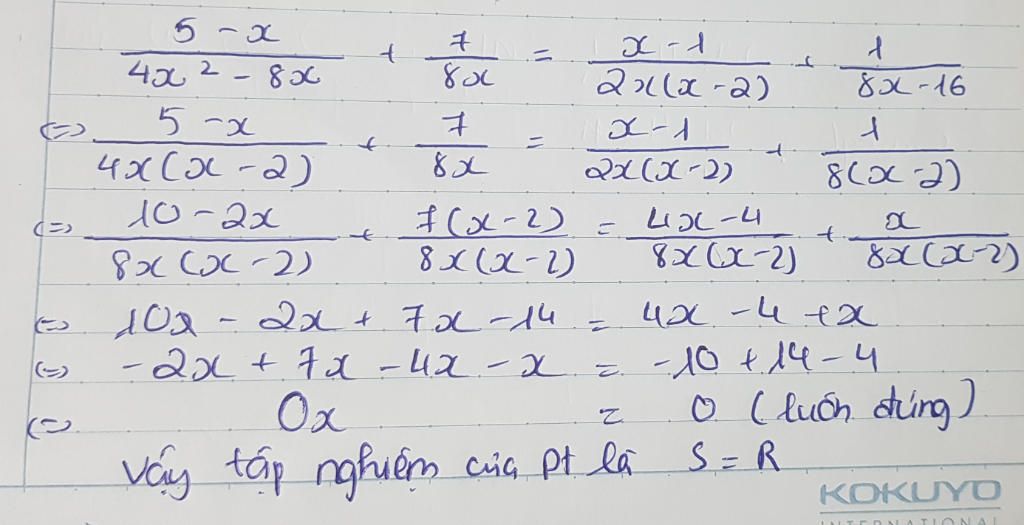 5 - x / 4x² - 8x + 7 / 8x = x - 1 / 2x(x - 2) + 1 / 8x - 16
<=> 5 - x / 4x(x - 2) + 7 / 8x = x - 1 / 2x(x - 2) + 1 / 8(x - 2)
<=> 10 - 2x / 8x(x - 2) + 7(x - 2) / 8x(x - 2) = 4x - 4 / 8x(x - 2) + x / 8x(x - 2)
<=> 10x - 2x + 7x - 14 = 4x - 4 + x
<=> -2x + 7x - 4x - x = -10 + 14 - 4
<=> 0x = 0 (luôn đúng)
Vậy tập nghiệm của pt là S = R
KOKUYO
INTERNATIONAL